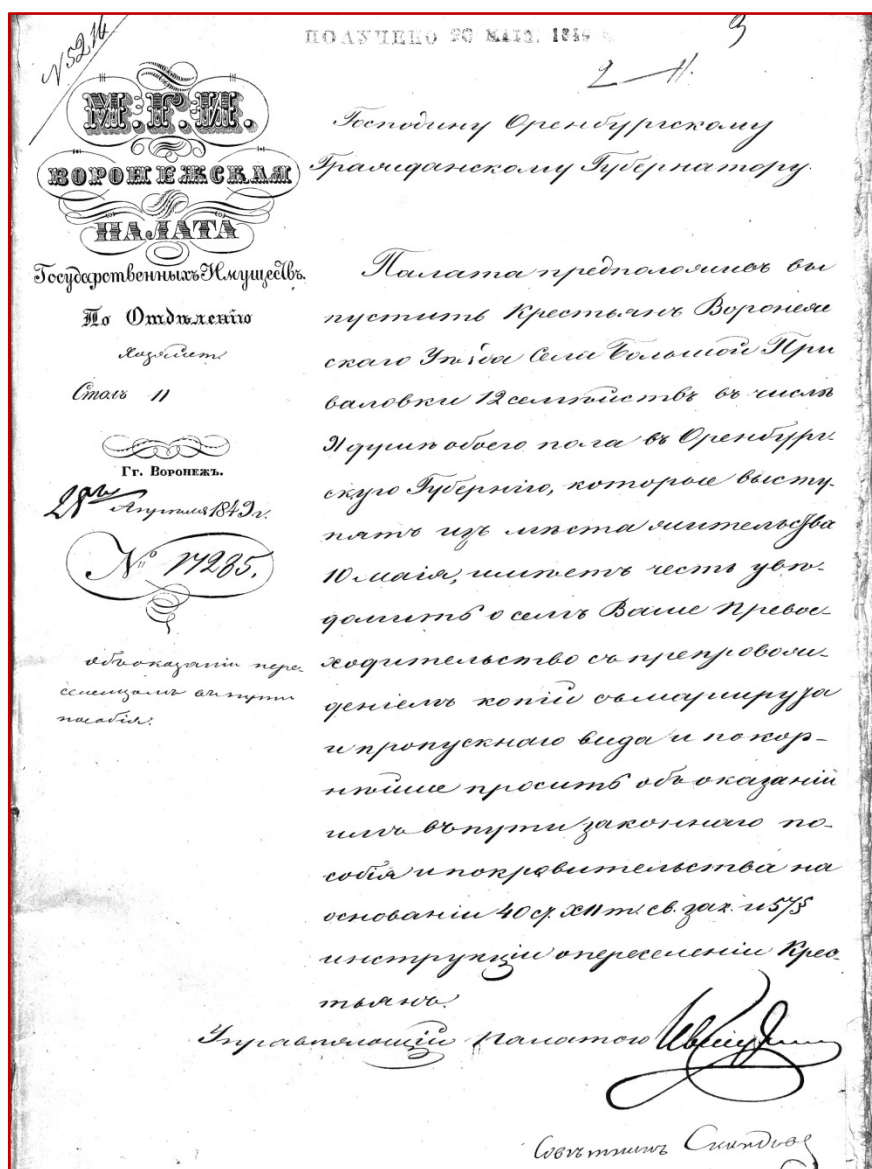 N 5214
ПОЛУЧЕНО 20 МАІЯ. 1849
3
2
М.Г.И.
ВОРОНЕЖСКАЯ
ПАЛАТА
Государственныхъ Имуществъ.
По Отдѣленію
Хозяйст.
Столъ 11
Гг. Воронежъ.
28го Апрѣля 1849 г.
№ 17285.
объ оказаніи пере-
селенцамъ въ пути
пособія.
Господину Оренбургскому
Гражданскому Губернатору.
Палата предположивъ вы
пустить Крестьянъ Воронеж
скаго Уѣзда Села Большой При
валовки 12 семѣйствъ въ числѣ
91 душъ обоего пола въ Оренбург-
скую Губернію, которое высту-
пятъ изъ мѣста жительства
10 маія, имѣетъ честь увѣ-
домить о семъ Ваше Превос-
ходительство съ препровож-
деніемъ копій съ маршрута
и пропускнаго вида и покор-
нѣйше просить объ оказаніи
имъ въ пути законнаго по-
собія и покровительства на
основаніи 40 ст. XII т. св. зак. и 57 §
инструкціи о переселеніи Крес-
тьянъ.
Управляющій Палатою
Совѣтникъ